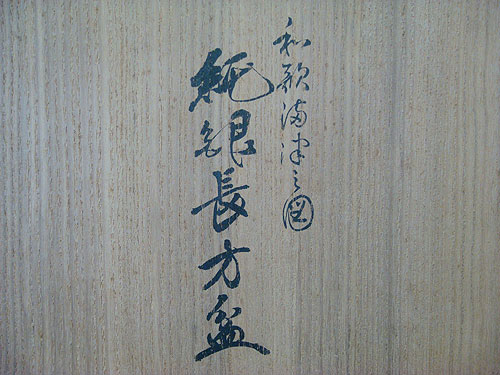 和歌満津之図
純銀長方盆